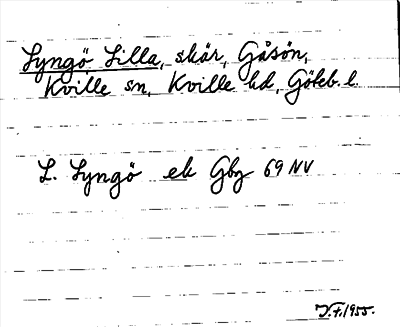 Lyngö Lilla, skär, Gåsön,
Kville sn, Kville hd, Göteb. l.
L. Lyngö ek Gbg 69 NV
J.F. 1955.